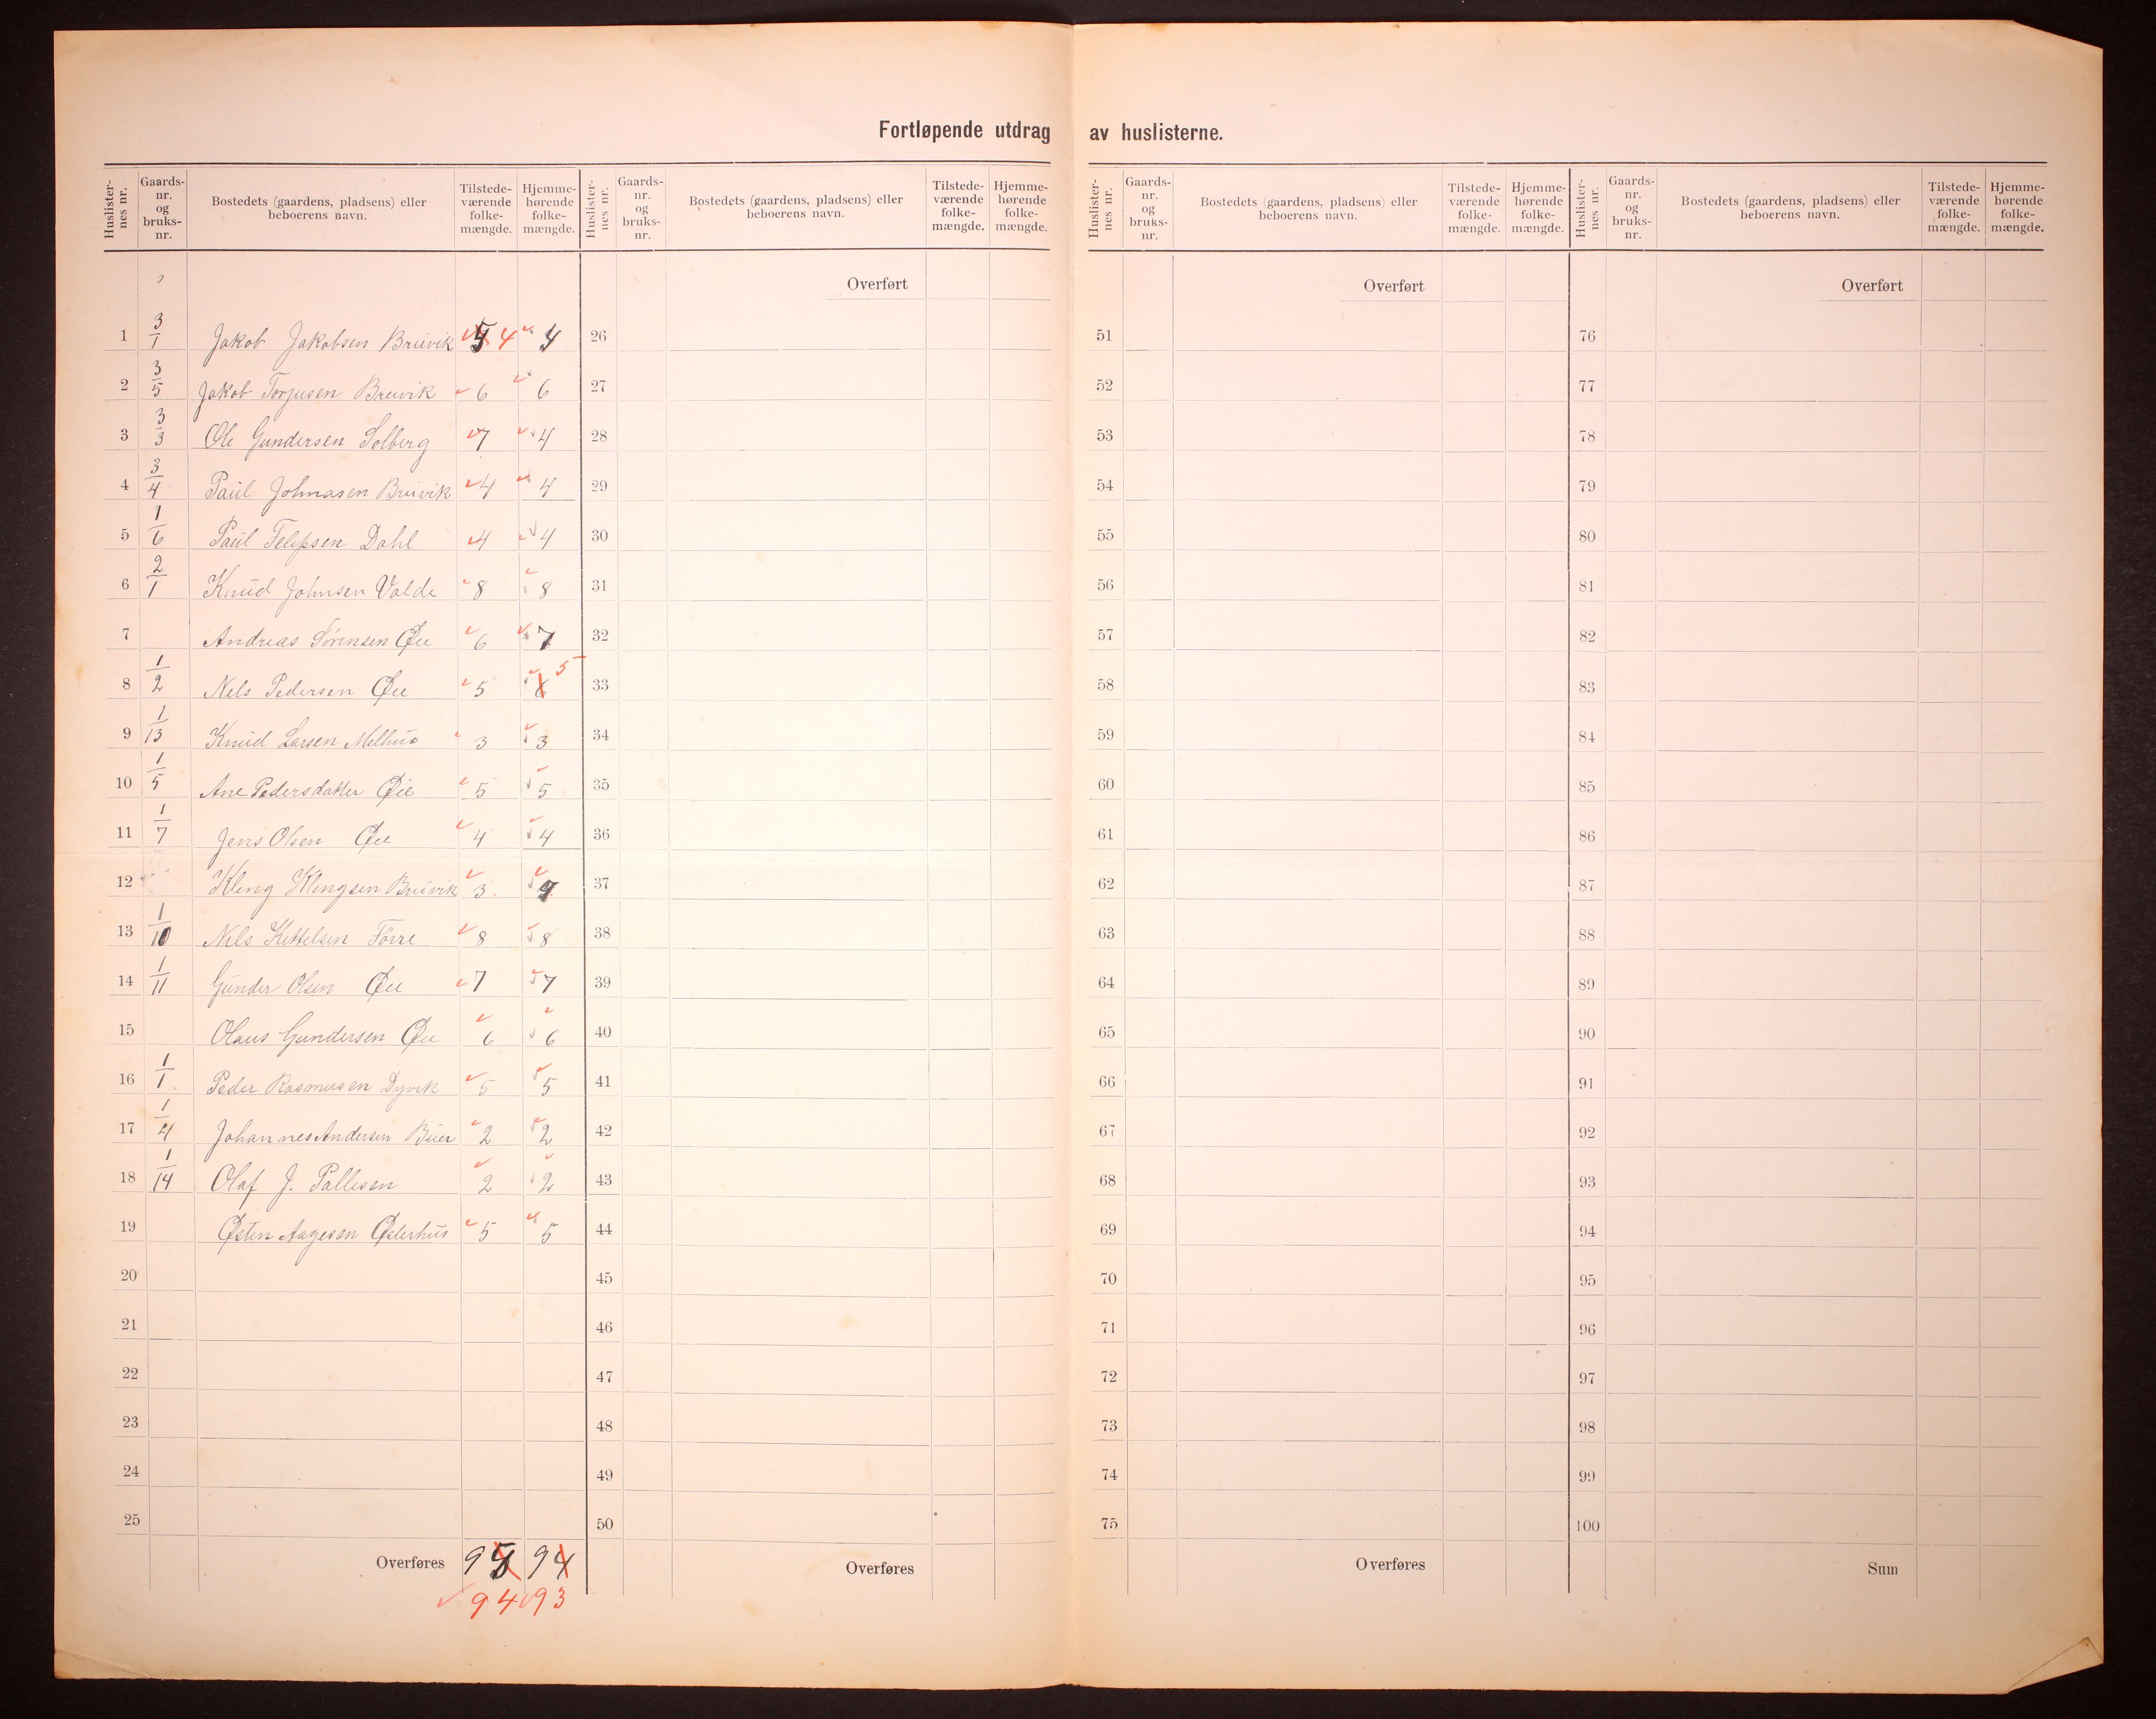 Fortløpende utdrag av huslisterne.
Huslisternes nr. Gaards-nr. og bruks-nr. Bostedets (gaardens, pladsens) eller beboerens navn. Tilstede-værende folke-mængde. Hjemme-hørende folke-mængde.
Huslisternes nr. Gaards-nr. og bruks-nr. Bostedets (gaardens, pladsens) eller beboerens navn. Tilstede-værende folke-mængde. Hjemme-hørende folke-mængde.
Huslisternes nr. Gaards-nr. og bruks-nr. Bostedets (gaardens, pladsens) eller beboerens navn. Tilstede-værende folke-mængde. Hjemme-hørende folke-mængde.
Huslisternes nr. Gaards-nr. og bruks-nr. Bostedets (gaardens, pladsens) eller beboerens navn. Tilstede-værende folke-mængde. Hjemme-hørende folke-mængde.
Overført Overført Overført
1 3/1 Jakob Jakobsen Bruvik 5 4 4 26 51 76
2 3/5 Jakob Torjusen Bruvik 6 6 27 52 77
3 3/3 Ole Gundersen Solberg 7 4 28 53 78
4 3/4 Paul Johnasen Bruvik 4 4 29 54 79
5 1/6 Paul Felepsen Dahl 4 4 30 55 80
6 2/1 Knud Johnsen Valde 8 8 31 56 81
7 Andreas Sørensen Øie 6 7 32 57 82
8 1/2 Nels Pedersen Øie 5 6 5 33 58 83
9 1/13 Knud Larsen Melhus 3 3 34 59 84
10 1/5 Ane Pedersdatter Øie 5 5 35 60 85
11 1/7 Jens Olsen Øie 4 4 36 61 86
12 Kleng Klengsen Bruvik 3 4 37 62 87
13 1/10 Nils Kittelsen Förre 8 8 38 63 88
14 1/11 Gunder Olsen Øie 7 7 39 64 89
15 Olaus Gundersen Øie 6 6 40 65 90
16 1/1 Peder Rasmusen Dyvik 5 5 41 66 91
17 1/4 Johannes Andersen 2 2 42 67 92
18 1/14 Olaf J. Pallesen 2 2 43 68 93
19 Østen Aagesen Østerhus 5 5 44 69 94
20 45 70 95
21 46 71 96
22 47 72 97
23 48 73 98
24 49 74 99
25 50 75 100
Overføres 95 94 Overføres Overføres Sum
94 93